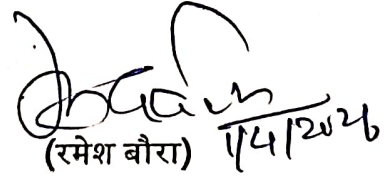 (रमेश बौरा) 1/4/2026